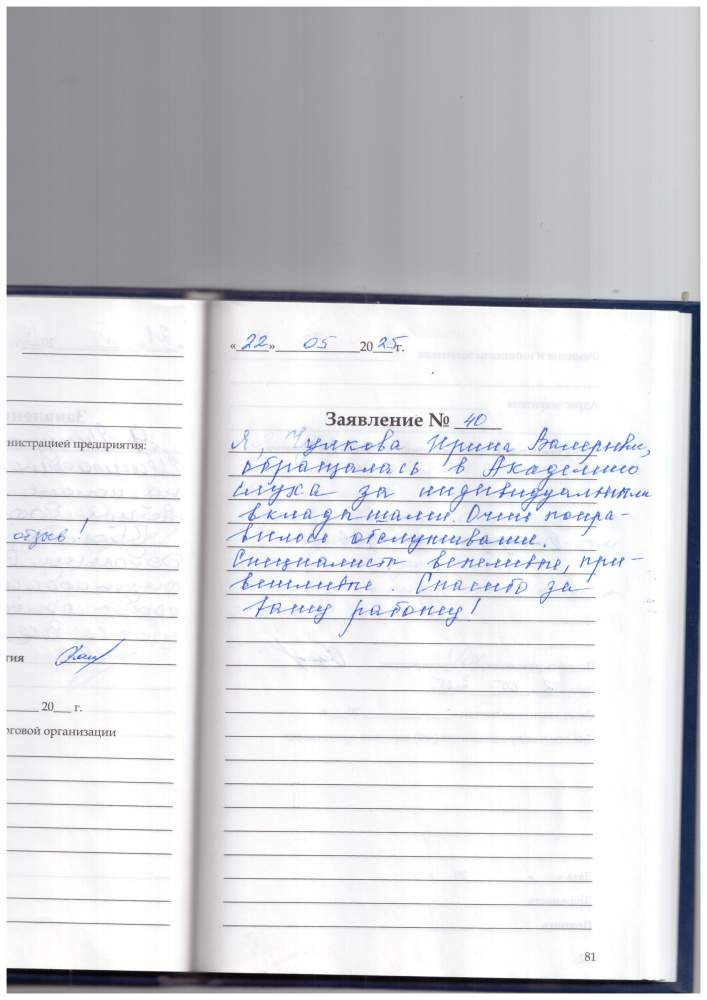 «22» 05 2025 г.
Заявление № 40
Я, Чулкова Ирина Валерьевна,
обращалась в Академию
слуха за индивидуальными
вкладышами. Очень понра-
вилось обслуживание.
Специалисты вежливые, при-
ветливые. Спасибо за
вашу работу!
81
нистрацией предприятия:
отзыв!
тия
20___ г.
рговой организации